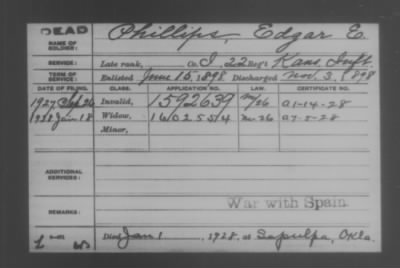 DEAD
NAME OF SOLDIER: Phillips, Edgar E.
SERVICE: Late rank, Co. I, 22 Reg't Kans. Inft.
TERM OF SERVICE: Enlisted June 15, 1898 Discharged Nov. 3, 1898
DATE OF FILING. CLASS. APPLICATION NO. LAW. CERTIFICATE NO.
1927 Sep 26 Invalid, 1592639 A1-14-28
1928 Jan 18 Widow, 1602554 A7-5-28
Minor,
ADDITIONAL SERVICES:
War with Spain.
REMARKS:
Died Jan 1, 1928, at Sapulpa, Okla.